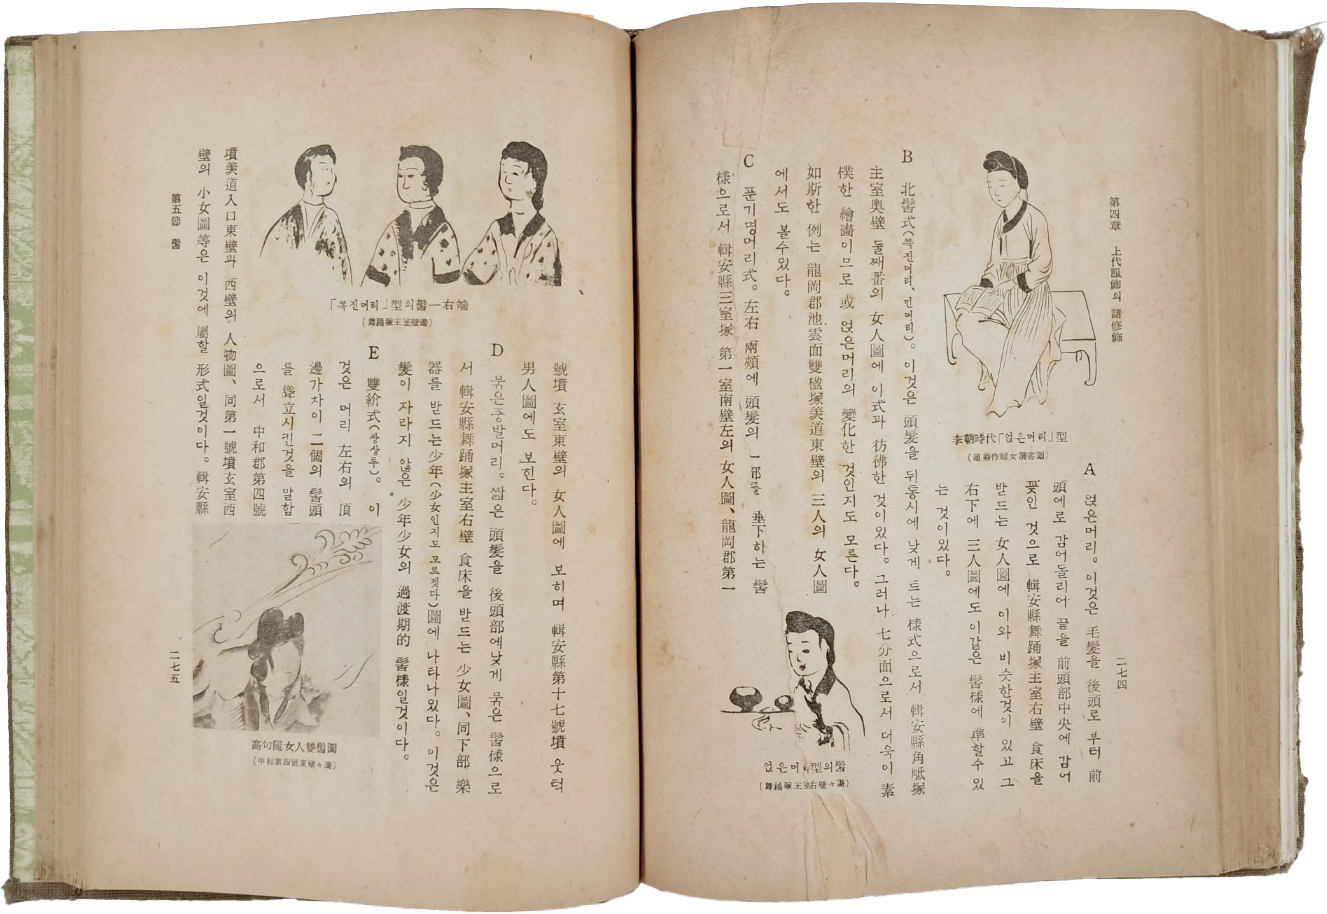 第四章 上代服飾의 諸修飾
李朝時代「얹은머리」型
A 얹은머리。이것은 毛髮을 後頭로 부터 前
頭에로 감어돌리어 끝을 前頭部中央에 감어
꽂인 것으로 輯安縣舞踊塚主室右壁 食床을
받드는 女人圖에 이와 비슷한것이 있고 그
右下에 三人圖에도 이같은 髻樣에 準할수 있
는 것이있다。
B 北髻式(쪽진머리, 민머리)。이것은 頭髮을 뒤통시에 낮게 트는 樣式으로서 輯安縣角觝塚
主室奧壁 둘째番의 女人圖에 이式과 彷彿한 것이있다。그러나 七分面으로서 더욱이 素
樸한 繪畵이므로 或 얹은머리의 變化한 것인지도 모른다。
如斯한 例는 龍岡郡池雲面雙楹塚羨道東壁의 三人의 女人圖
에서도 볼수있다。
C 푼기명머리式。左右 兩頰에 頭髮의 一部를 垂下하는 髻
樣으로서 輯安縣三室塚 第一室南壁左의 女人圖、龍岡郡第一
얹은머리型의髻
(舞踊塚主室右壁々畵)
二七四
「쪽진머리」型의髻一右端
(舞踊塚主室壁畵)
號墳 玄室東壁의 女人圖에 보히며 輯安縣第十七號墳 웃턱
男人圖에도 보힌다。
D 묶은중발머리。짧은 頭髮을 後頭部에낮게 묶은 髻樣으로
서 輯安縣舞踊塚主室右壁 食床을 받드는 少女圖、同下部 樂
器를 받드는少年(少女인지도 모르겟다)圖에 나타나있다。이것은
髮이 자라지 않은 少年少女의 過渡期的 髻樣일것이다。
E 雙紒式(쌍상투)。이
것은 머리 左右의 頂
邊가차이 二個의 髻頭
를 聳立시킨것을 말함
으로서 中和郡第四號
墳羨道入口東壁과 西壁의 人物圖、同第一號墳玄室西
壁의 小女圖等은 이것에 屬할 形式일것이다。輯安縣
高句麗女人雙髻圖
(中和第四號東壁々畵)
第五節 髻
二七五